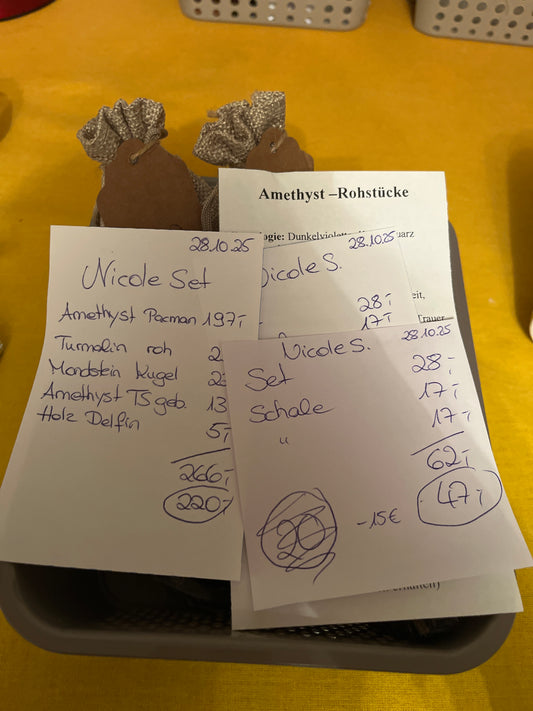 Amethyst –Rohstücke
Dunkelviolett
28.10.25
Nicole Set
Amethyst Pacman 197,-
Turmalin roh 2
Mondstein Kugel 2
Amethyst TS geb. 13
Holz Delfin 5,-
266,-
220,-
28.10.25
Nicole S.
28,-
17,-
28.10.25
Nicole S.
Set 28,-
Schale 17,-
" 17,-
62,-
47,-
20 -15€